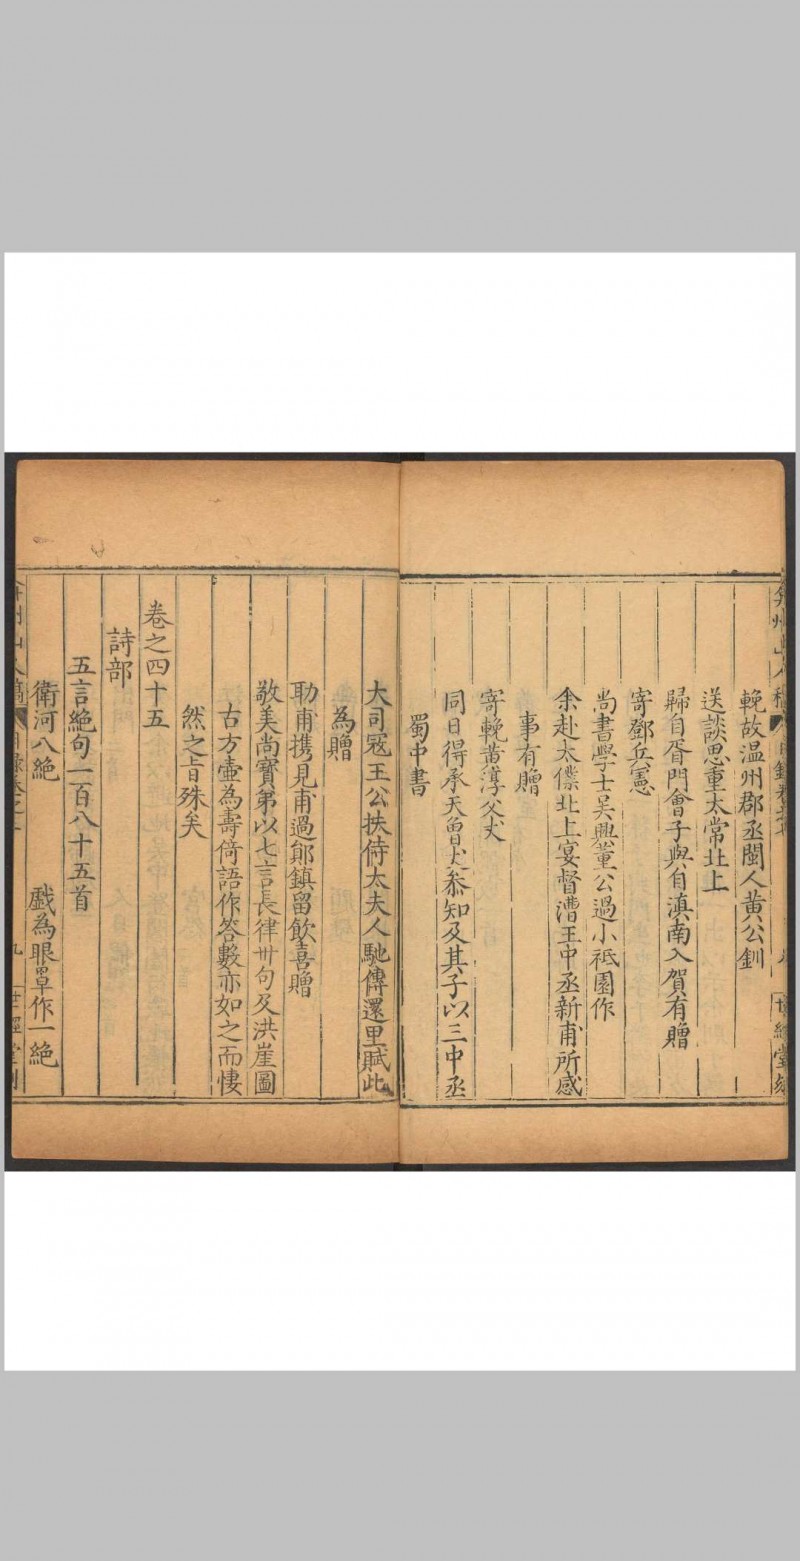 輓故温州郡丞閩人黄公釧
送談思重太常北上
歸自胥門會子與自滇南入賀有贈
寄鄧兵憲
尚書學士吳興董公過小祗園作
余赴太僕北上宴督漕王中丞新甫所感
事有贈
寄輓黄淳父丈
同日得承天曾大叅知及其子以三中丞
蜀中書
大司寇王公扶侍太夫人馳傳還里賦此
為贈
助甫携見甫過鄖鎮留飲喜贈
敬美尚寶弟以七言長律卅句及洪崖圖
古方壺為壽倚語作答數亦如之而悽
然之旨殊矣
卷之四十五
詩部
五言絶句一百八十五首
衛河八絶 戲為眼罩作一絶
九
世經堂刻